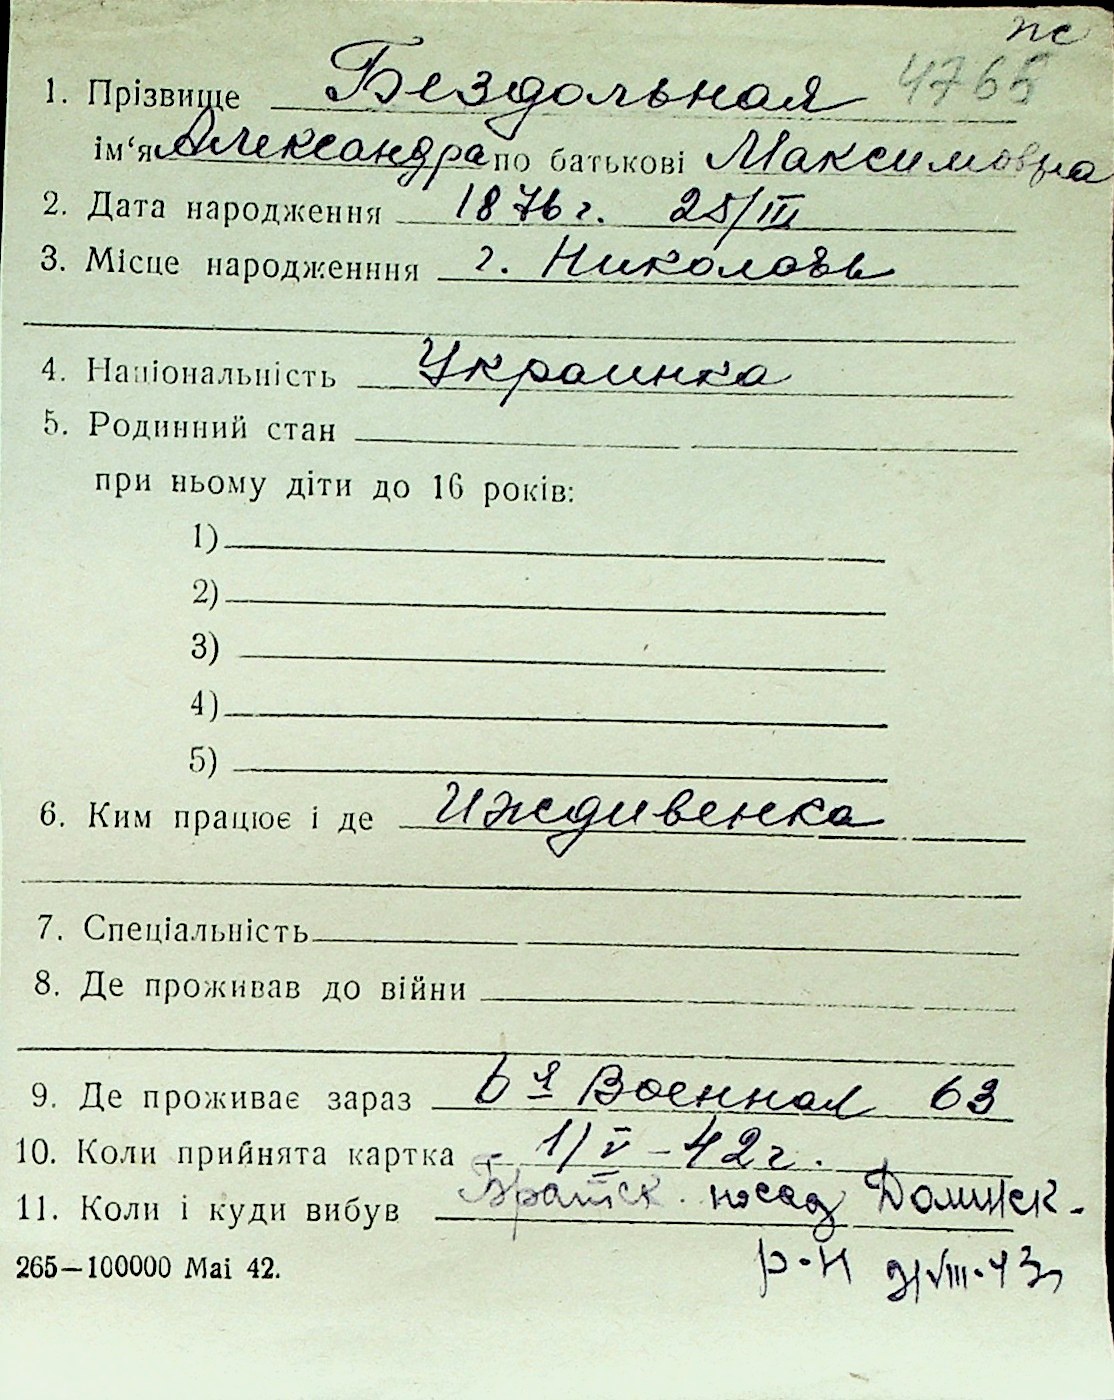 пс
1. Прізвище Бездольная 4765
ім‘я Александра по батькові Максимовна
2. Дата народження 1876 г. 25/III
3. Місце народженння г. Николаев
4. Національність Украинка
5. Родинний стан
при ньому діти до 16 років:
1)
2)
3)
4)
5)
6. Ким працює і де Иждивенка
7. Спеціальність
8. Де проживав до війни
9. Де проживає зараз 6я Военная 63
10. Коли прийнята картка 1/V-42 г.
11. Коли і куди вибув Братск. посад
р-н
265—100000 Mai 42.